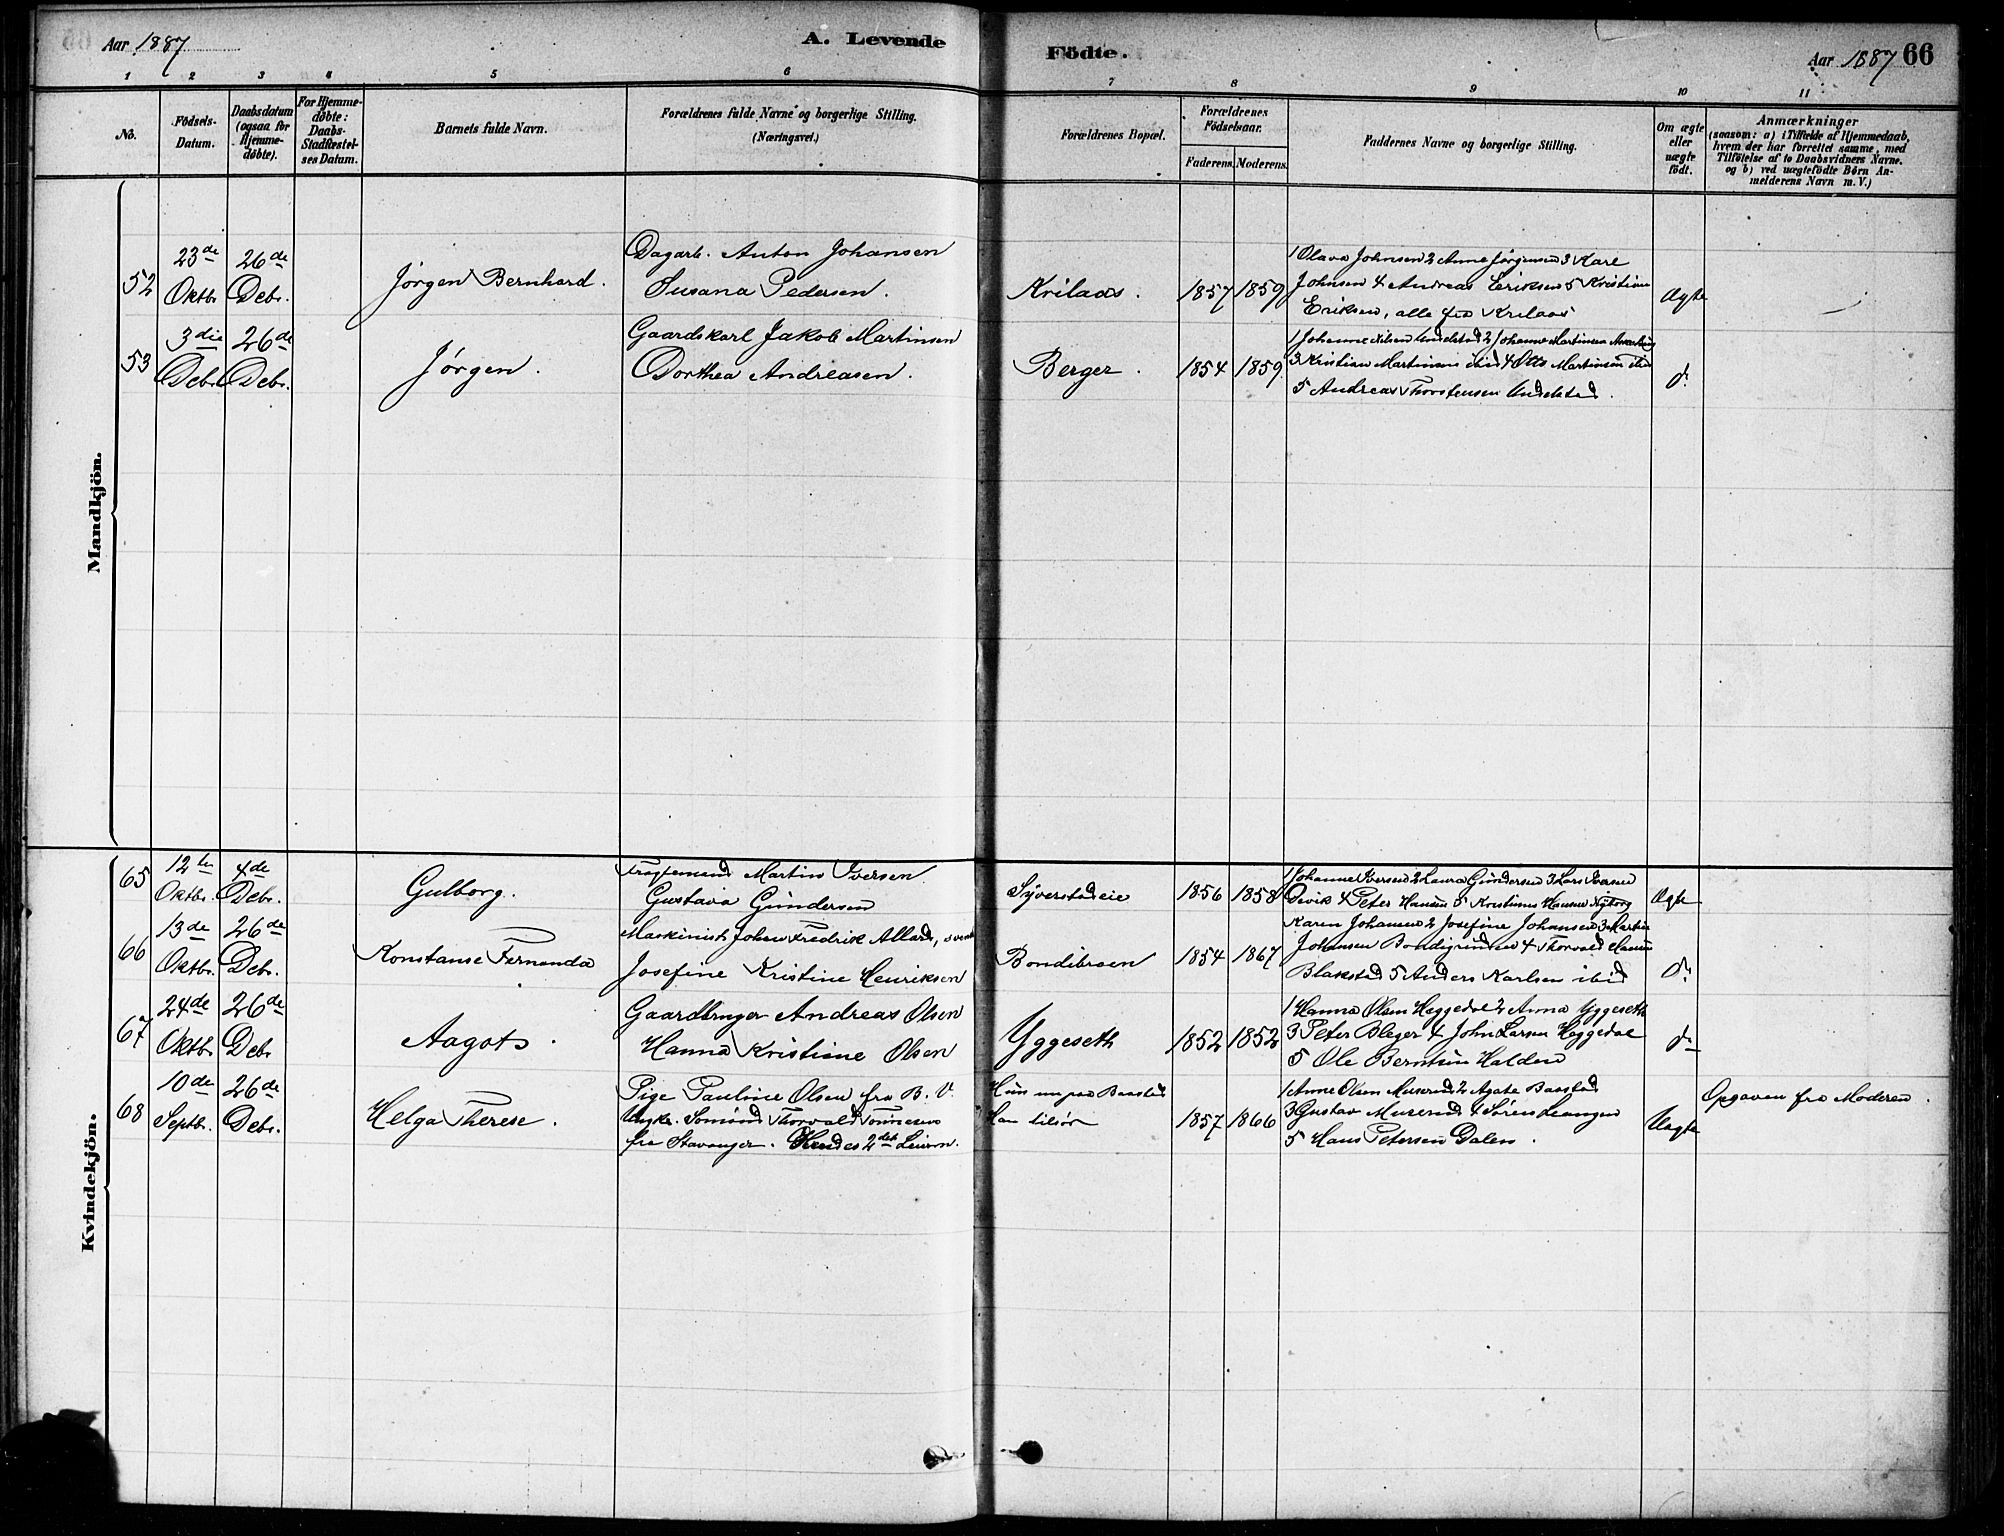 Aar 1887
A. Levende
Födte.
Aar 1887 66
1 2 3 4 5 6 7 8 9 10 11
No.
Födsels-
Datum.
Daabsdatum
(ogsaa for
Hjemme-
döbte).
For Hjemme-
döbte:
Daabs-
Stadfæstel-
ses Datum.
Barnets fulde Navn.
Forældrenes fulde Navne og borgerlige Stilling.
(Næringsvei.)
Forældrenes Bopæl.
Forældrenes
Födselsaar.
Faderens. Moderens.
Faddernes Navne og borgerlige Stilling.
Om ægte
eller
uægte
födt.
Anmærkninger
(saasom: a) i Tilfælde af Hjemmedaab,
hvem der har forrettet samme, med
Tilföielse af to Daabsvidners Navne.
og b) ved uægtefödte Börn An-
melderens Navn m. V.)
Mandkjön.
52
23de
Oktbr.
26de
Debr.
Jørgen Bernhard.
Dagarb. Anton Johansen
Susana Pedersen.
Krilaas.
1857 1859
1 Olava Johnsen 2 Anne Jørgensen 3 Karl
Johnsen 4 Andreas Eriksen 5 Kristian
Eriksen, alle fra Krilaas
Ægte
53
3die
Debr.
26de
Debr.
Jørgen.
Gaardskarl Jakob Martinsen
Dorthea Andreasen.
Berger.
1854 1859
1 Johanne Nilsen Undelstad 2 Johanne Martinsen
3 Kristian Martinsen ibid 4 Otto Martinsen ibid
5 Andreas Thorstensen Undelstad.
do
Kvindekjön.
65
12te
Oktbr.
4de
Debr.
Gulborg.
Martin Iversen.
Gustava Gundersen
Syverstadeie
1856 1858
1 Johanne Iversen 2 Laura Gundersen 3 Lars Iversen
4 Peter Hansen 5 Kristines Hansen Nyborg
Ægte
66
13de
Oktbr.
26de
Debr.
Konstanse Fernanda
Maskinist Johan Fredrik Allard, svensk
Josefine Kristine Henriksen
Bondibraaten
1854 1867
Karen Johansen 2 Josefine Johansen 3 Martin
Johansen Bondigrinden 4 Thorvald Hansen
Blakstad 5 Anders Karlsen ibid
do
67
24de
Oktbr.
26de
Debr.
Aagot.
Gaardbruger Andreas Olsen
Hanna Kristiane Olsen
Yggeseth
1852 1852
1 Hanna Olsen Heggedal 2 Anna Yggeseth
3 Peter Bleger 4 John Larsen Heggedal
5 Ole Berntsen Halden
do
68
10de
Septbr.
26de
Debr.
Helga Therese.
Pige Pauline Olsen fra B. V.
Ungk. Sømand Thorvald Tønnesen
fra Stavanger. Hendes 2det Leierm.
Hun nu paa Baastad
Han tilsøs
1857 1866
1 Anne Olsen Muserud 2 Agate Baastad
3 Gustav Muserud 4 Søren Leangen
5 Hans Petersen Dalen.
Uægte
Opgaven fra Moderen.